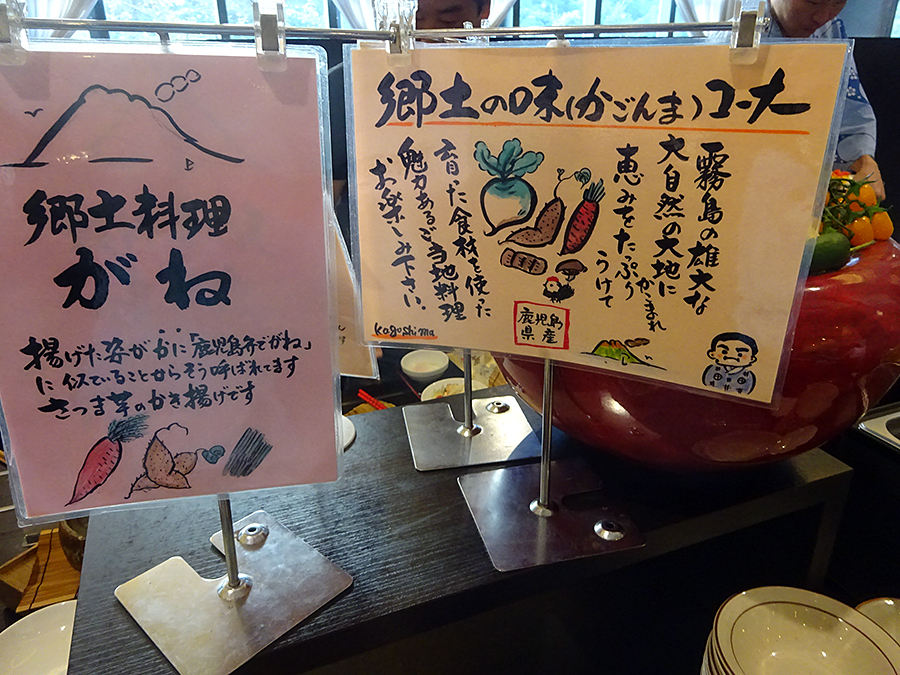 郷土料理
がね
揚げた姿がかに「鹿児島弁でがね」
に似ていることからそう呼ばれてます
さつま芋のかき揚げです
郷土の味(かごんま)コーナー
霧島の雄大な
大自然の大地に
かこまれ
恵みをたっぷり
うけて
育った食材を使った
魅力あるご当地料理
お楽しみ下さい。
kagoshima
鹿児島
県産